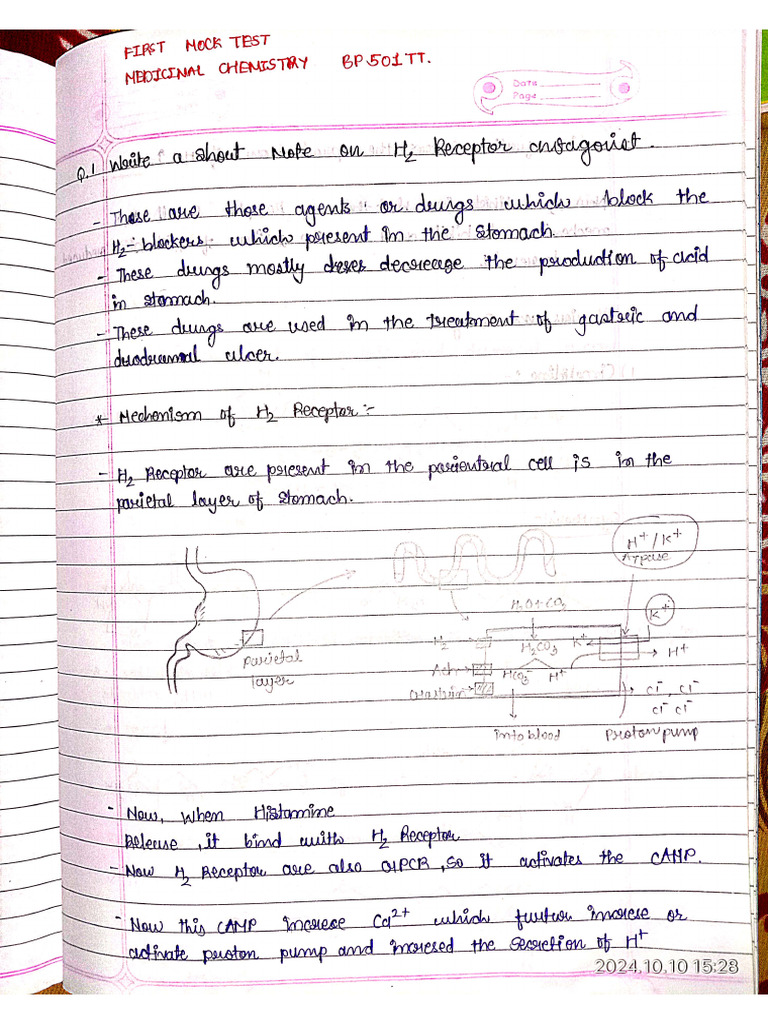 FIRST MOCK TEST
MEDICINAL CHEMISTRY BP501TT.
Date
Page
Q.1 Write a Short Note on H2 Receptor antagonist.
- These are those agents or drungs which block the
H2-blockers which present in the Stomach.
- These drungs mostly decreease the production of acid
in stomach.
- These drungs are used in the treatment of gastric and
ulcer.
* Mechenism of H2 Receptor :-
- H2 Receptor are present in the cell is in the
parietal layer of stomach.
H+/K+
ATPase
H2O+CO2
K+
H2
H2CO3
K+
H+
parietal
layer
Ach
HCO3-
H+
Cl-, Cl-
Cl- Cl-
into blood
Proton pump
- Now, when Histamine
Release, it bind with H2 Receptor
- Now H2 Receptor are also GPCR, so it activates the CAMP.
- Now this CAMP increse Ca2+ which furtur increse or
activate proton pump and incresed the secretion of H+
2024,10,10 15:28